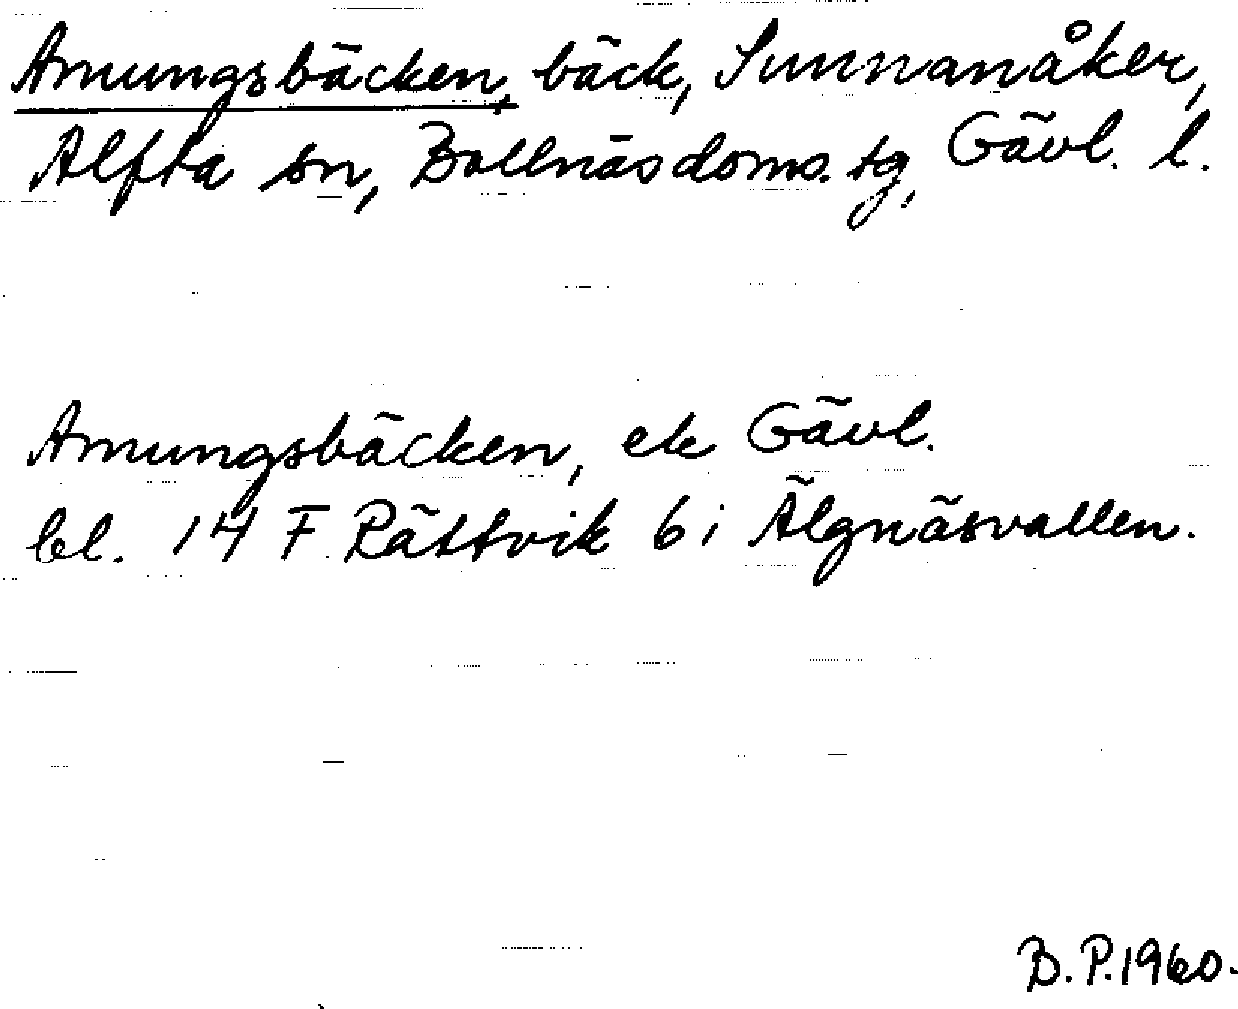 Amungsbäcken, bäck, Sunnanåker,
Alfta sn, Bollnäs doms. tg, Gävl. l.
Amungsbäcken, ek Gävl.
bl. 14 F Rättvik 6 i Älgnäsvallen.
B. P. 1960.